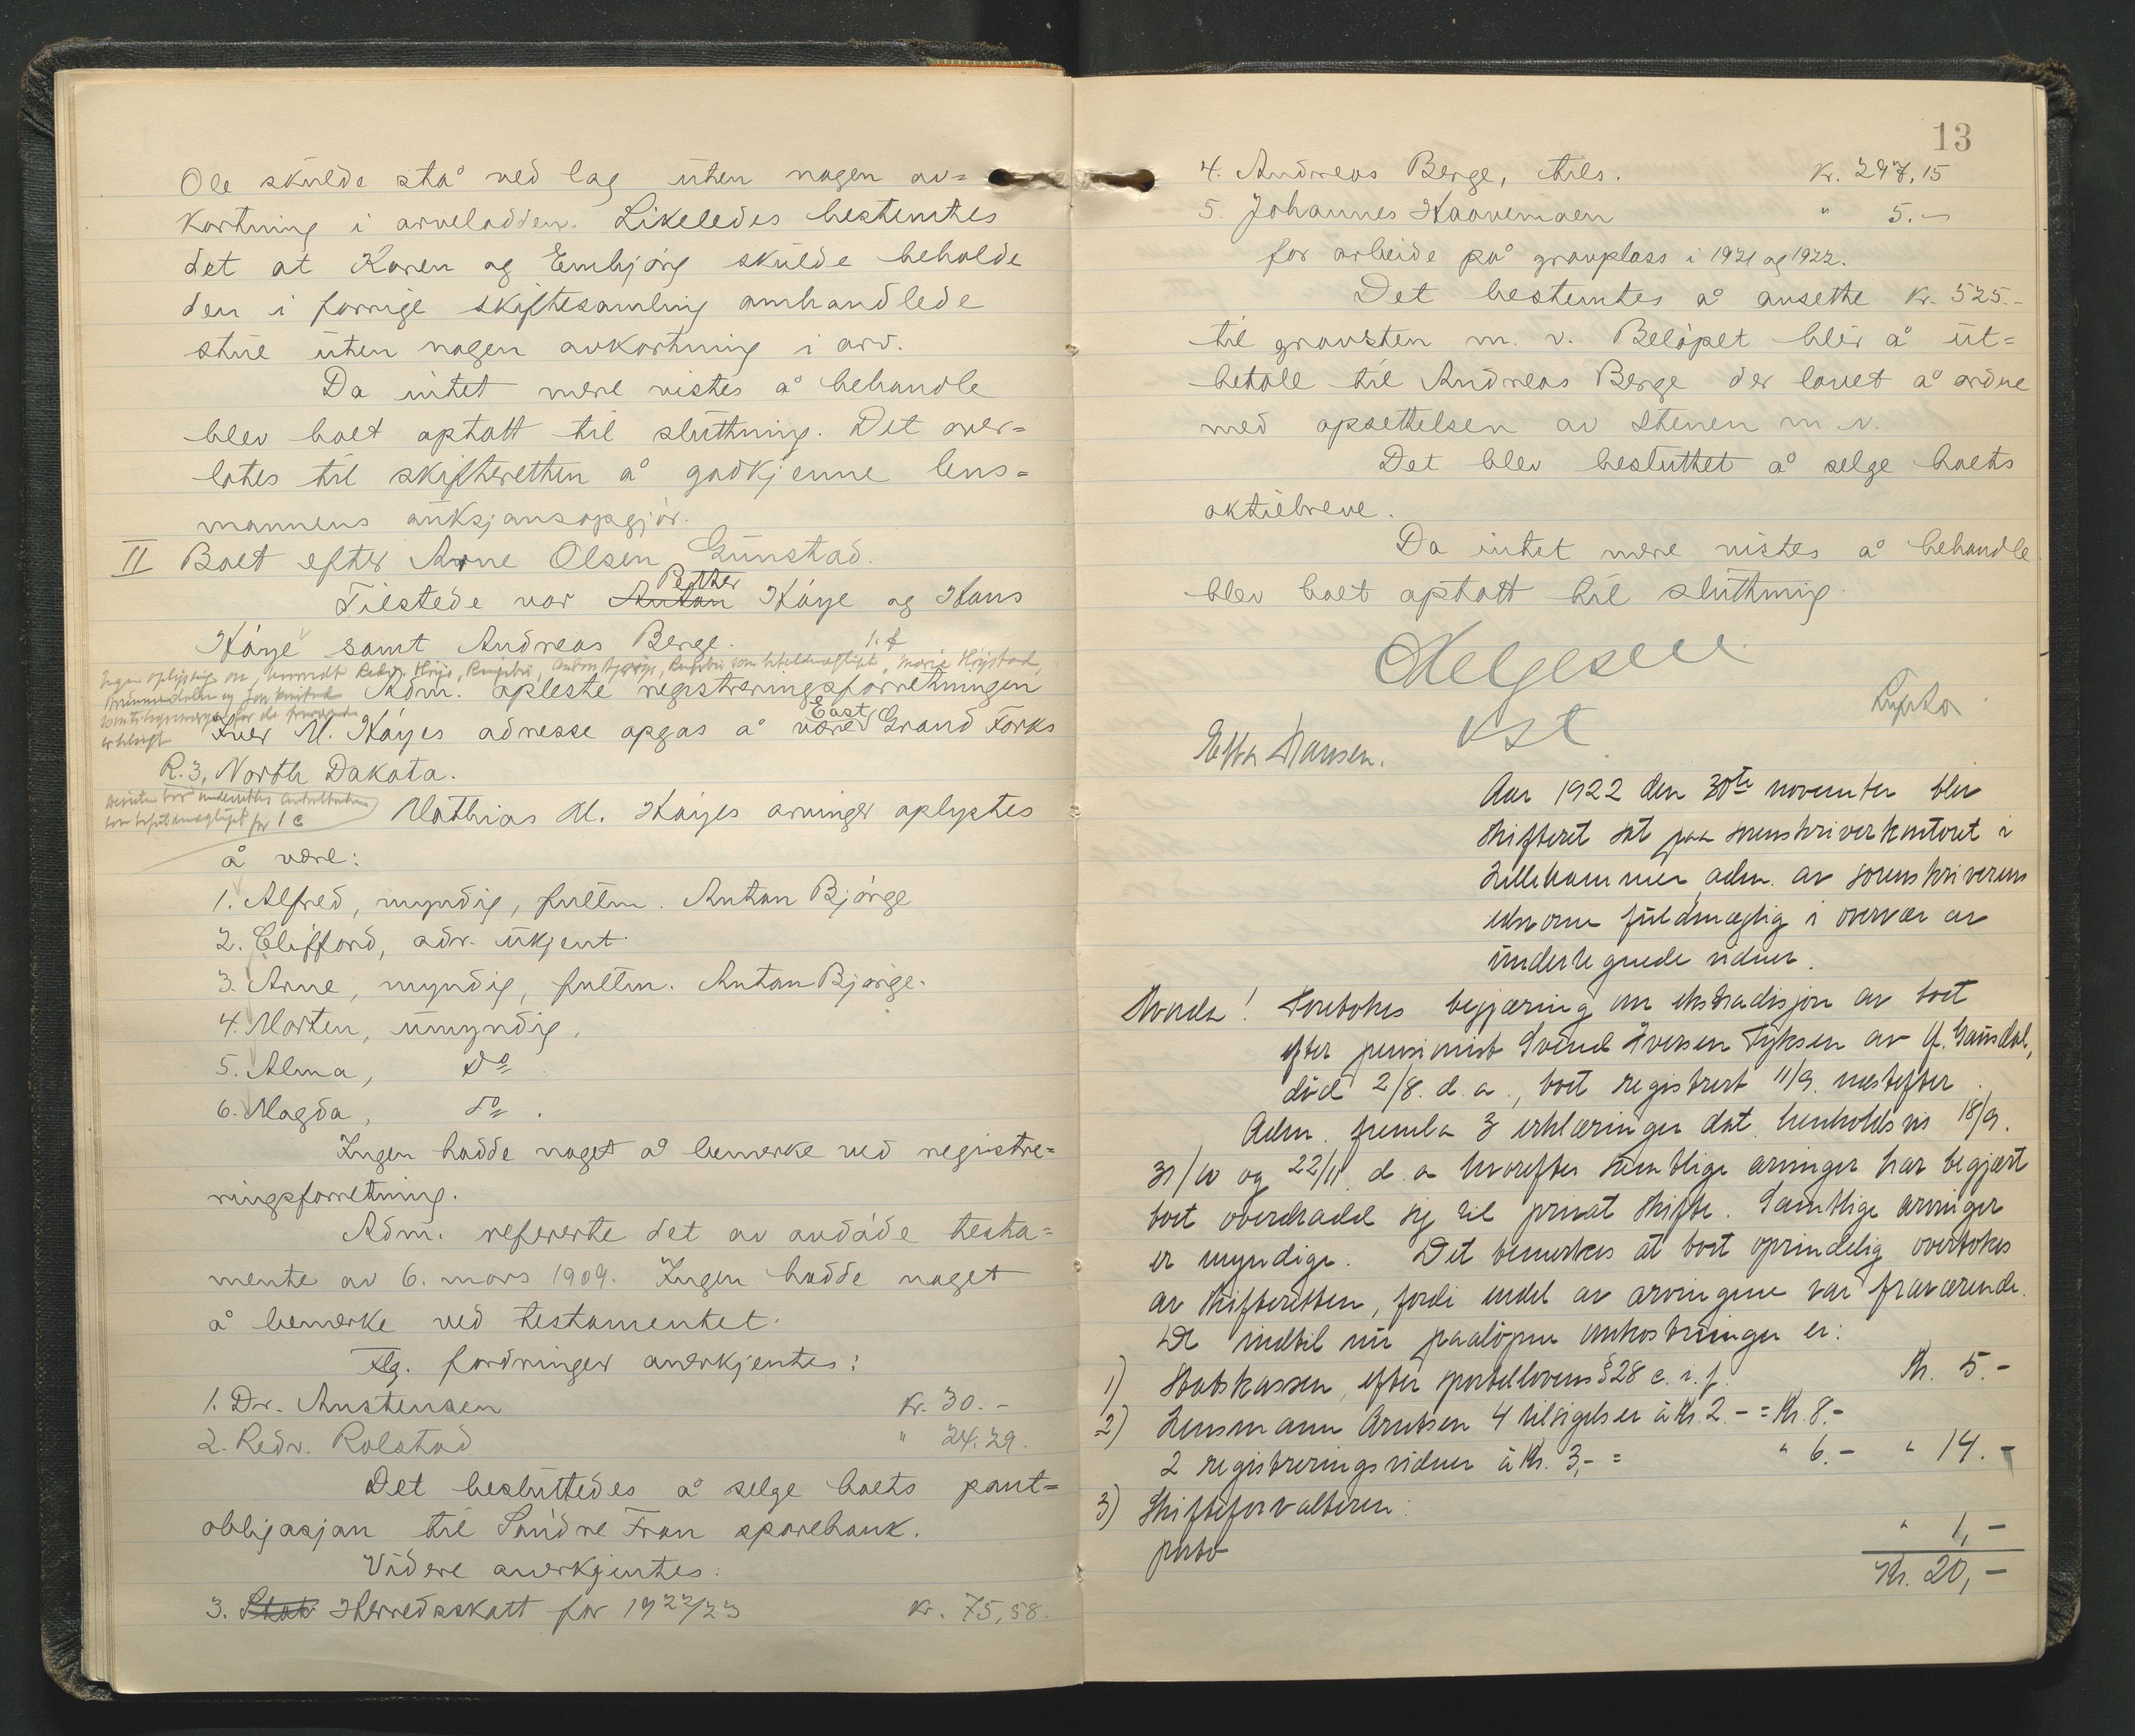 Ole skulde stå ved lag uten nogen av=
kortning i arvelodden. Likeledes bestemtes
det at Karen og Embjørg skulde beholde
den i forrige skiftesamling omhandlede
stue uten nogen avkortning i arv.
Da intet mere vistes å behandle
blev boet optatt til slutning. Det over=
lotes til skifteretten å godkjenne lens=
mannens auksjonsopgjør.
II Boet efter Arne Olsen Gunstad.
Tilstede var Anton Petter Høye og Hans
Høye samt Andreas Berge. 1. f
Adm. opleste registreringsforretningen
Iver M. Høyes adresse opgas å være East Grand Forks
R. 3, North Dakota.
Mathias M. Høyes arvinger oplystes
å være:
1. Alfred, myndig, fullm. Anton Bjørge
2. Clifford, adr. ukjent
3. Arne, myndig, fullm. Anton Bjørge.
4. Morten, umyndig,
5. Alma, Do
6. Magda, do.
Ingen hadde noget å bemerke ved registre=
ringsforretning.
Adm. refererte det av avdøde testa=
mente av 6. mars 1909. Ingen hadde noget
å bemerke ved testamentet.
Flg. fordringer anerkjentes:
1. Dr. Austensen Kr. 30.-
2. Redr. Rolstad " 24.29.
Det besluttedes å selge boets pant=
obligasjon til Søndre Fron sparebank.
Videre anerkjentes:
3. Herredsskatt for 1922/23 Kr. 75,58.
13
4. Andreas Berge, tils. Kr. 297,15
5. Johannes Haavemoen " 5.-
for arbeide på gravplass i 1921 og 1922.
Det bestemtes å ansette Kr. 525.-
til gravsten m. v. Beløpet blir å ut=
betale til Andreas Berge der lovet å ordne
med opsettelsen av stenen m v.
Det blev besluttet å selge boets
aktiebreve.
Da intet mere vistes å behandle
blev boet optatt til slutning.
Helgesen
kst
Hansen.
Aar 1922 den 30te november blev
skifteret sat paa sorenskriverkontoret i
Lillehammer adm. av sorenskriverens
edsvorne fuldmægtig i overvær av
undertegnede vidner.
Hvorda! Foretokes begjæring om ekstradisjon av boet
efter pensionist Svend Iversen Fyksen av Ø. Gausdal,
død 2/8. d. a., boet registrert 11/9. næstefter.
Adm. fremla 3 erklæringer dat. henholdsvis 18/9.
31/10 og 22/11. d. a hvorefter samtlige arvinger har begjært
boet overdradd sig til privat skifte. Samtlige arvinger
er myndige. Det bemerkes at boet oprindelig overtokes
av skifteretten, fordi endel av arvingene var fraværende.
De indtil nu paaløpne omkostninger er:
1) Statskassen, efter sportellovens § 28 c. i. f. Kr. 5.-
2) Lensmann Arntsen 4 tilsigelser à Kr. 2.- = Kr. 8.-
2 registreringsvidner à Kr. 3,- = " 6.- " 14.-
3) Skifteforvalteren:
porto " 1,-
Kr. 20,-